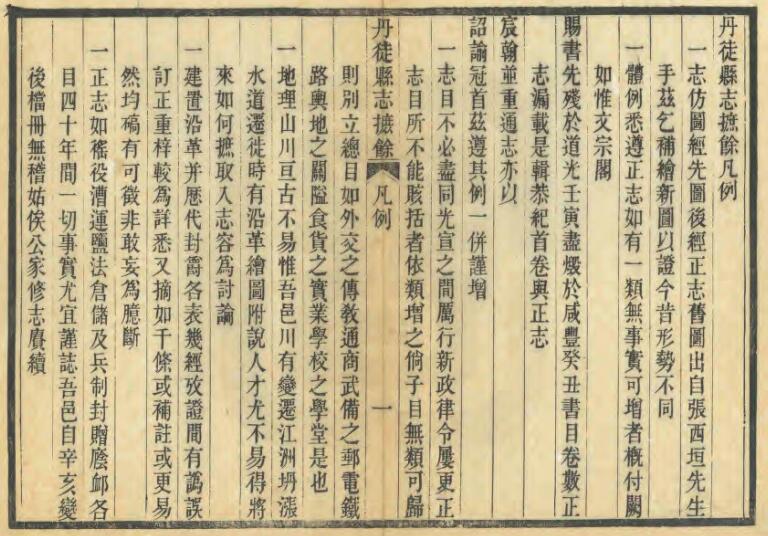 丹徒縣志摭餘凡例
一志仿圖經先圖後經正志舊圖出自張西垣先生
手茲乞補繪新圖以證今昔形勢不同
一體例悉遵正志如有一類無事實可增者槪付闕
如惟文宗閣
賜書先殘於道光壬寅盡燬於咸豐癸丑書目卷數正
志漏載是輯恭紀首卷與正志
宸翰並重通志亦以
詔諭冠首茲遵其例一併謹增
一志目不必盡同光宣之間厲行新政律令屢更正
志目所不能賅括者依類增之倘子目無類可歸
丹徒縣志摭餘 凡例 一
則別立總目如外交之傳敎通商武備之郵電鐵
路輿地之關隘食貨之實業學校之學堂是也
一地理山川亘古不易惟吾邑川有變遷江洲坍漲
水道遷徙時有沿革繪圖附說人才尤不易得將
來如何摭取入志容爲討論
一建置沿革幷歷代封爵各表幾經攷證間有譌誤
訂正重梓較爲詳悉又摘如干條或補註或更易
然均碻有可徵非敢妄爲臆斷
一正志如徭役漕運鹽法倉儲及兵制封贈廕卹各
目四十年間一切事實尤宜謹誌吾邑自辛亥變
後檔冊無稽姑俟公家修志賡續